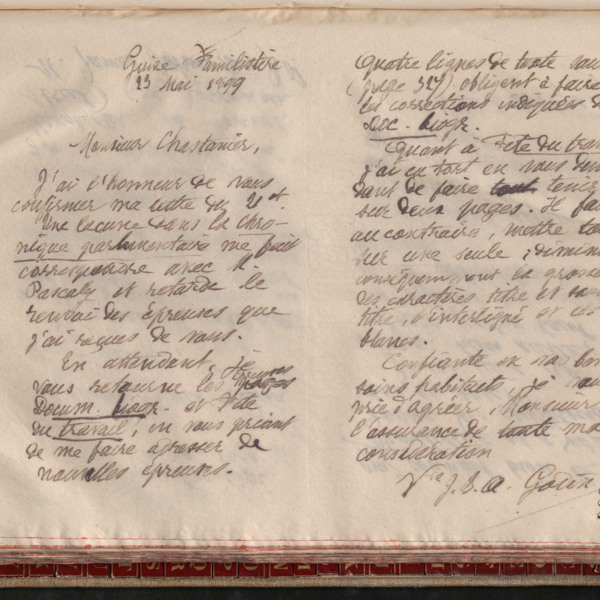 Guise Familistère
23 Mai 1899
Monsieur Chastanier,
J'ai l'honneur de vous
confirmer ma lettre du 21 ct.
Une lacune dans la Chro-
nique parlementaire me fait
correspondre avec M.
Pascaly et retarde le
renvoi des épreuves que
j'ai reçues de vous.
En attendant, je
vous retourne les épreuves
Docum. biogr. et Fête
du travail, en vous priant
de me faire adresser de
nouvelles épreuves.
Quatre lignes de texte
(page 327) obligent à faire
les corrections indiquées
Doc. biogr.
Quant à Fête du trav
j'ai eu tort en vous
dant de faire tout tenir
sur deux pages. Il fau
au contraire, mettre
sur une seule ; diminu
conséquemment la grosse
des caractères titre et sous
titre, l'interligne et les
blancs.
Confiante en vos bon
soins habituels, je vous
prie d'agréer, Monsieur
l'assurance de toute ma
considération
Vve J. B. A. Godin